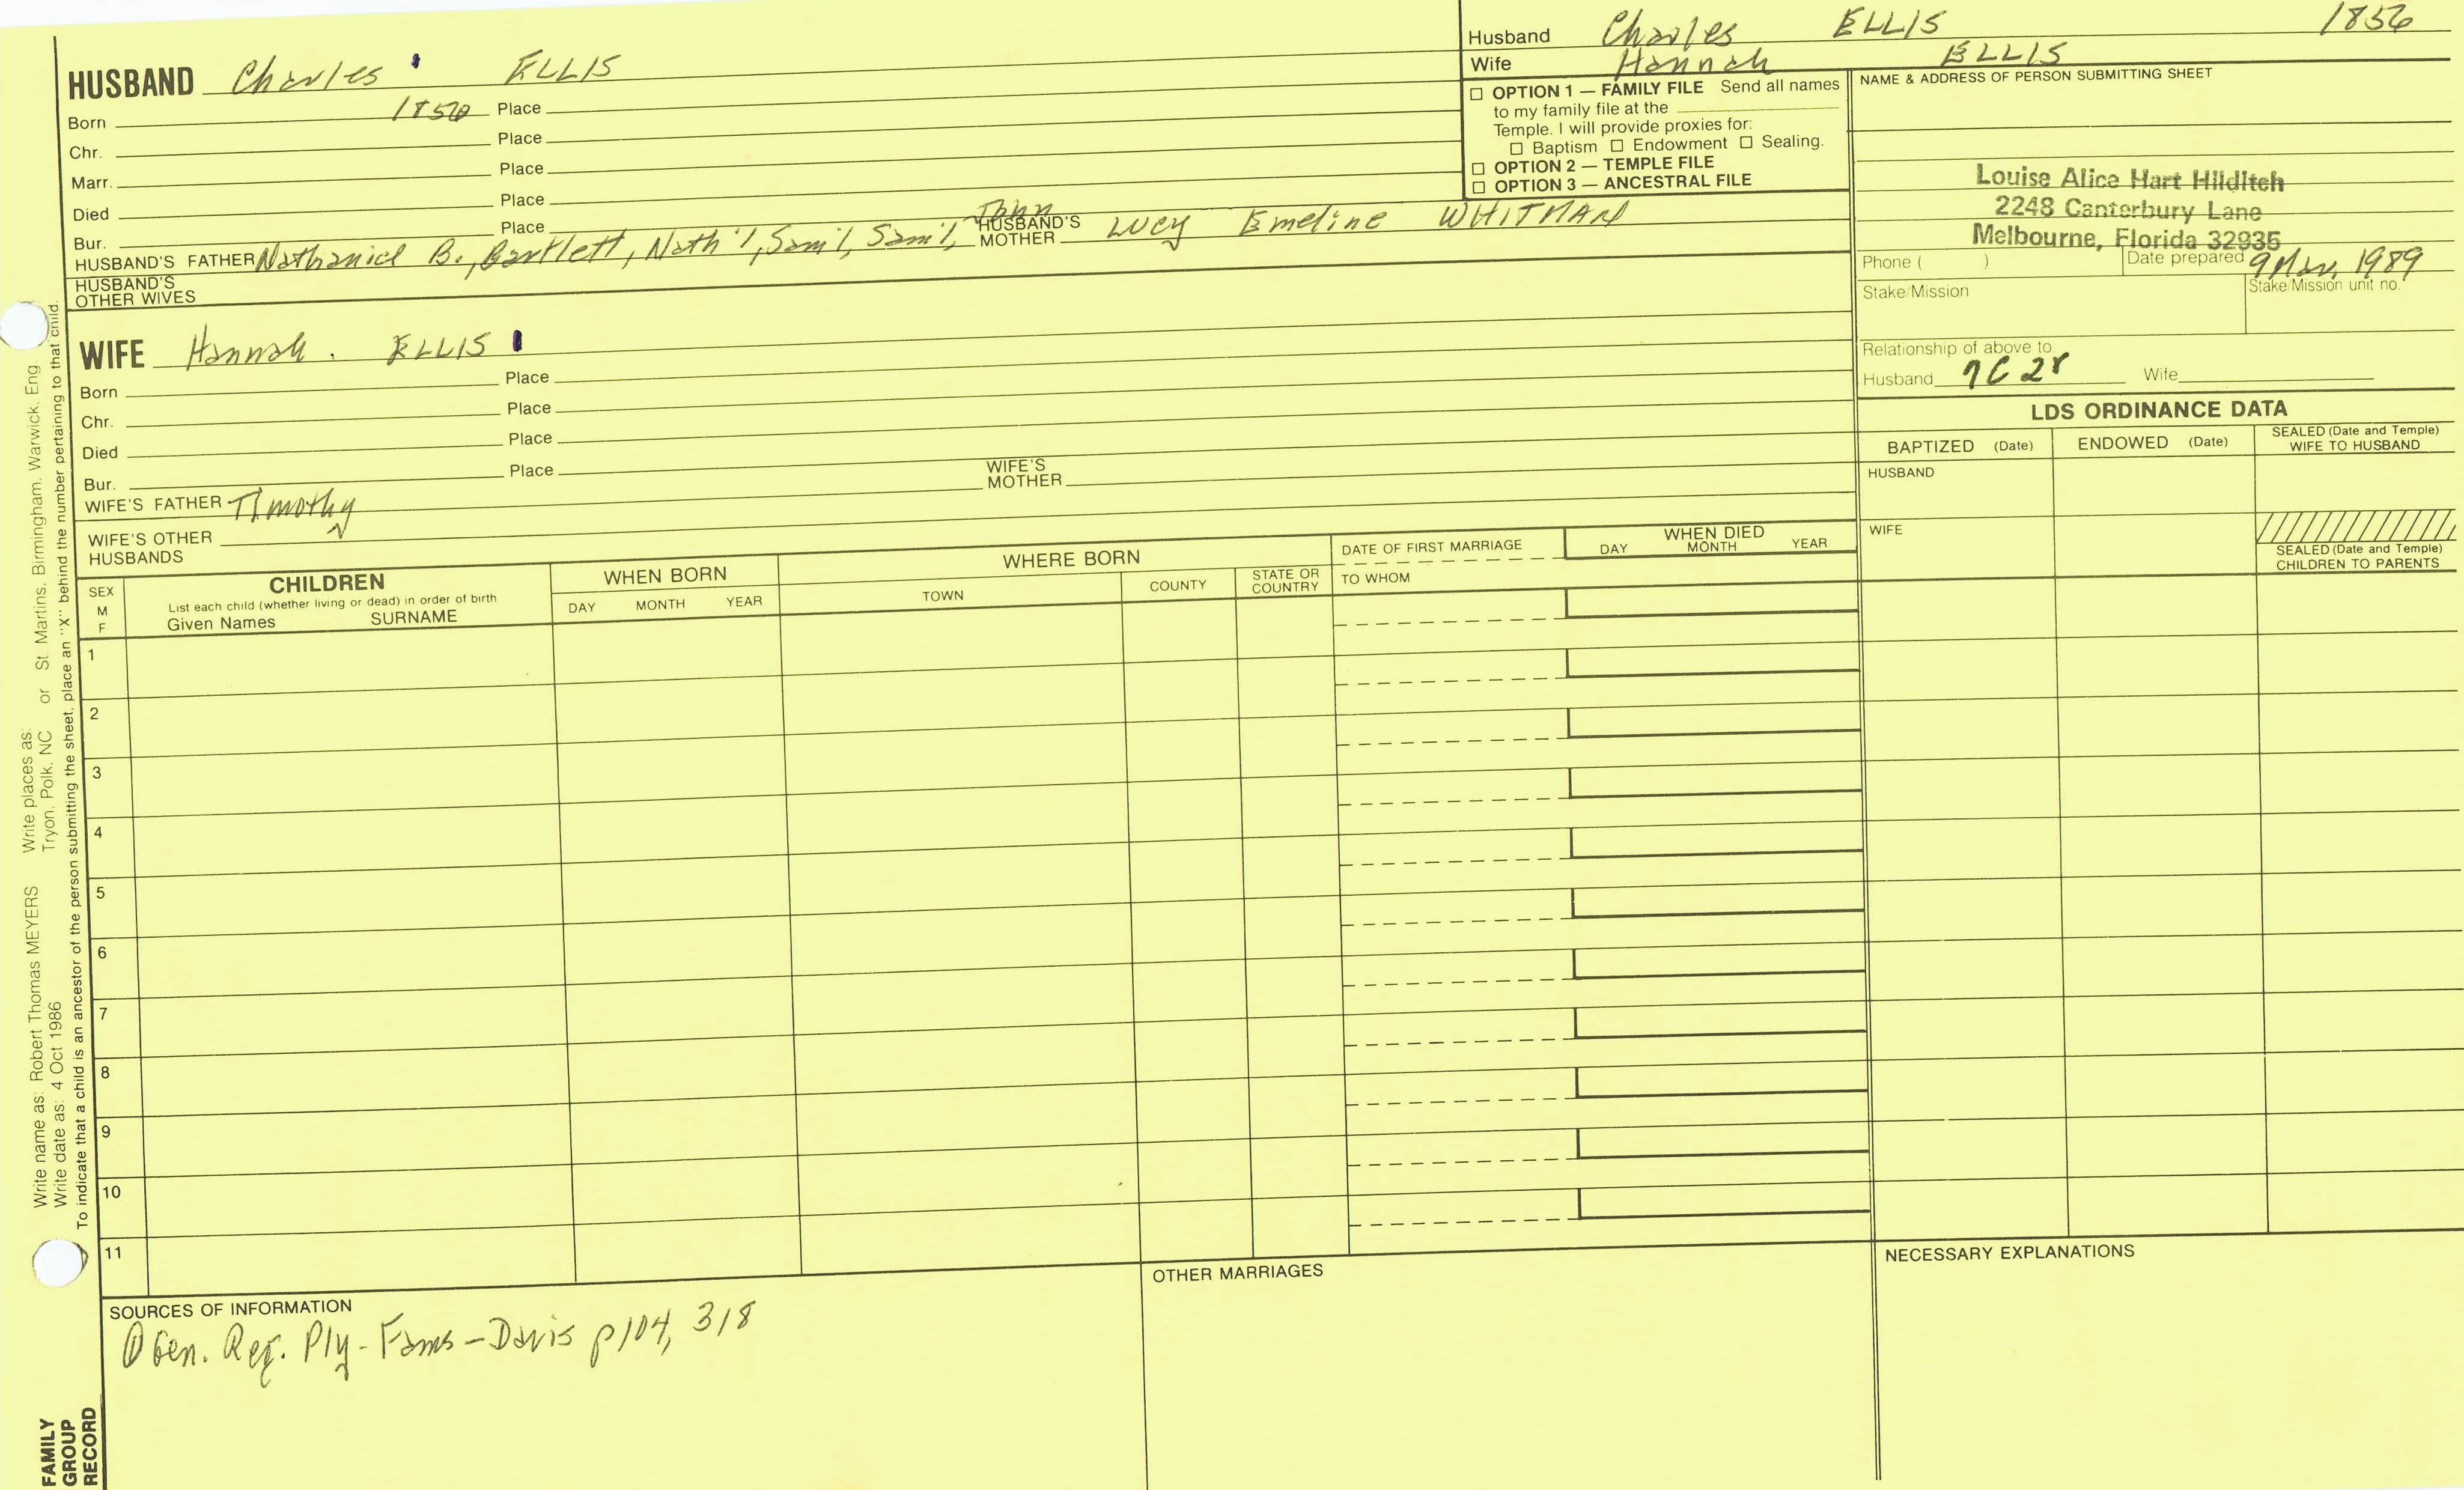 Husband Charles ELLIS 1856
Wife Hannah ELLIS
HUSBAND Charles ELLIS
Born 1856 Place
Chr. Place
Marr. Place
Died Place
Bur. Place
HUSBAND'S FATHER Nathaniel B., Bartlett, Nath'l, Sam'l, Sam'l, John
HUSBAND'S MOTHER Lucy Emeline WHITMAN
HUSBAND'S OTHER WIVES
☐ OPTION 1 — FAMILY FILE Send all names
to my family file at the
Temple. I will provide proxies for:
☐ Baptism ☐ Endowment ☐ Sealing.
☐ OPTION 2 — TEMPLE FILE
☐ OPTION 3 — ANCESTRAL FILE
NAME & ADDRESS OF PERSON SUBMITTING SHEET
Louise Alice Hart Hilditch
2248 Canterbury Lane
Melbourne, Florida 32935
Phone ( ) Date prepared 9 Mar, 1989
Stake/Mission Stake/Mission unit no.
Relationship of above to
Husband 7C2R Wife
WIFE Hannah. ELLIS
Born Place
Chr. Place
Died Place
Bur. Place
WIFE'S FATHER Timothy
WIFE'S MOTHER
WIFE'S OTHER
HUSBANDS
LDS ORDINANCE DATA
BAPTIZED (Date) ENDOWED (Date) SEALED (Date and Temple) WIFE TO HUSBAND
HUSBAND
WIFE
SEALED (Date and Temple)
CHILDREN TO PARENTS
SEX
M
F
CHILDREN
List each child (whether living or dead) in order of birth
Given Names SURNAME
WHEN BORN
DAY MONTH YEAR
WHERE BORN
TOWN COUNTY STATE OR COUNTRY
DATE OF FIRST MARRIAGE
TO WHOM
WHEN DIED
DAY MONTH YEAR
1
2
3
4
5
6
7
8
9
10
11
SOURCES OF INFORMATION
① Gen. Reg. Ply-Fams-Davis p104, 318
OTHER MARRIAGES
NECESSARY EXPLANATIONS
Write name as: Robert Thomas MEYERS Write places as:
Write date as: 4 Oct 1986 Tryon, Polk, NC or St. Martins, Birmingham, Warwick, Eng.
To indicate that a child is an ancestor of the person submitting the sheet, place an "X" behind the number pertaining to that child.
FAMILY
GROUP
RECORD